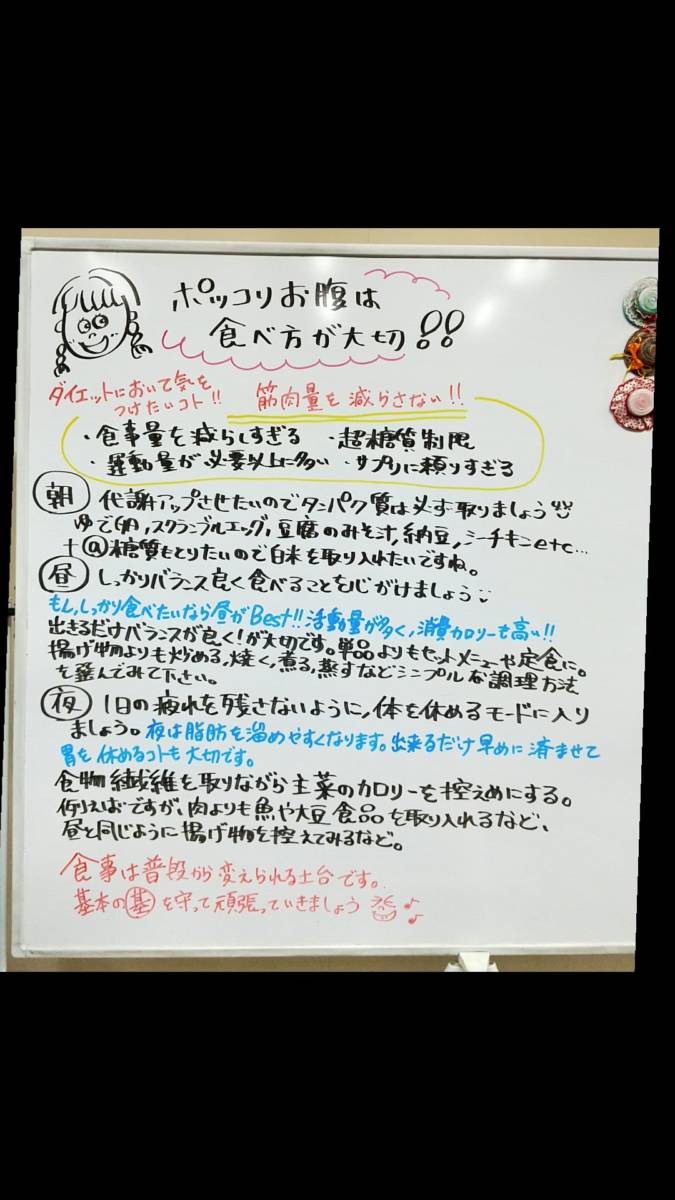 ポッコリお腹は
食べ方が大切!!
ダイエットにおいて気を
つけたいコト!!
筋肉量を減らさない!!
・食事量を減らしすぎる ・超糖質制限
・運動量が必要以上に多い ・サプリに頼りすぎる
朝 代謝アップさせたいのでタンパク質は必ず取りましょう
ゆで卵,スクランブルエッグ,豆腐のみそ汁,納豆,シーチキンetc...
+@糖質もとりたいので白米を取り入れたいですね。
昼 しっかりバランス良く食べることを心がけましょう
もし,しっかり食べたいなら昼がBest!!活動量が多く,消費カロリーも高い!!
出きるだけバランスが良く!が大切です。単品よりもセットメニューや定食に。
揚げ物よりも炒める,焼く,煮る,蒸すなどシンプルな調理方法
を選んでみて下さい。
夜 1日の疲れを残さないように,体を休めるモードに入り
ましょう。夜は脂肪を溜めやすくなります。出来るだけ早めに済ませて
胃を休めるコトも大切です。
食物繊維を取りながら主菜のカロリーを控えめにする。
例えばですが、肉よりも魚や大豆食品を取り入れるなど、
昼と同じように揚げ物を控えてみるなど。
食事は普段から変えられる土台です。
基本の基を守って頑張っていきましょう